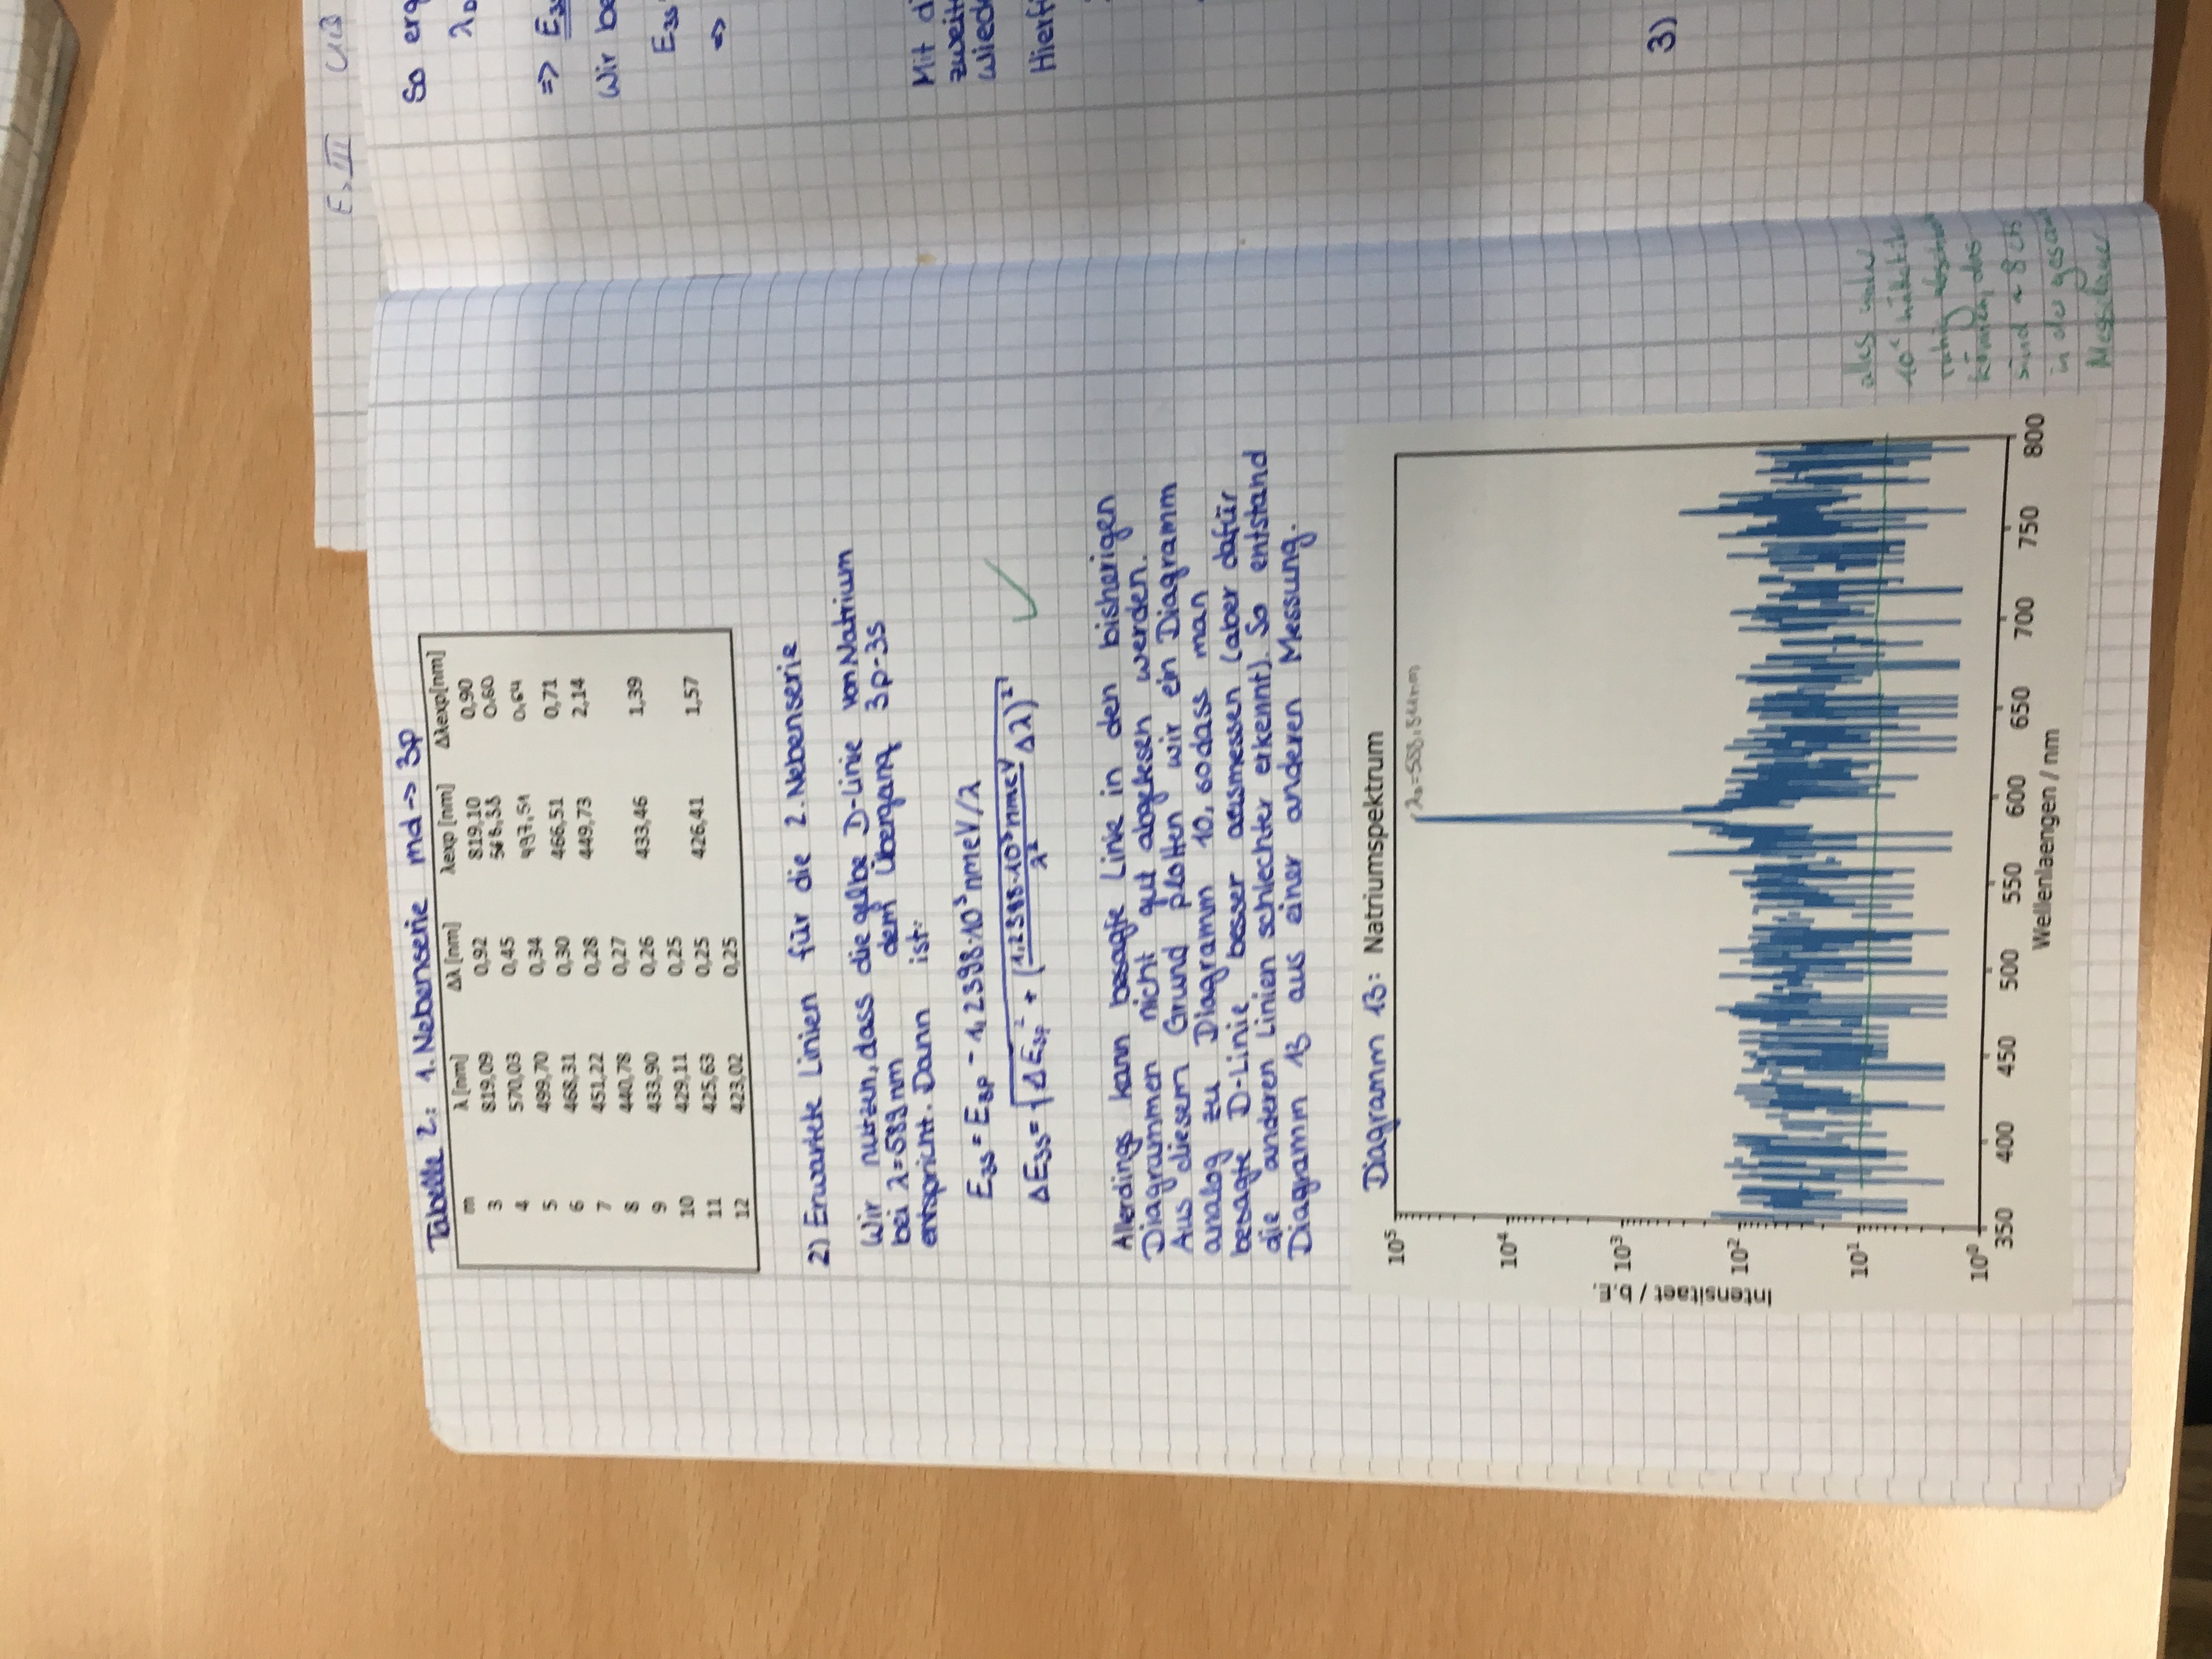 E>III
Tabelle 2: 1. Nebenserie md -> 3p
m λ [nm] Δλ [nm] λexp [nm] Δλexp[nm]
3 819,09 0,92 819,10 0,90
4 570,03 0,45 568,38 0,60
5 499,70 0,34 497,51 0,64
6 468,31 0,30 466,51 0,71
7 451,22 0,28 449,73 2,14
8 440,78 0,27
9 433,90 0,26 433,46 1,39
10 429,11 0,25
11 425,63 0,25 426,41 1,57
12 423,02 0,25
2) Erwartete Linien für die 2. Nebenserie
Wir nutzen, dass die gelbe D-Linie von Natrium
bei λ=589nm dem Übergang 3p-3s
entspricht. Dann ist:
E3s = E3p - 1,2398·10³nmeV/λ
ΔE3s = √(ΔE3p² + (1,2398·10³nmeV/λ² Δλ)²)
Allerdings kann besagte Linie in den bisherigen
Diagrammen nicht gut abgelesen werden.
Aus diesem Grund plotten wir ein Diagramm
analog zu Diagramm 10, sodass man
besagte D-Linie besser ausmessen (aber dafür
die anderen Linien schlechter erkennt). So entstand
Diagramm 13 aus einer anderen Messung.
Diagramm 13: Natriumspektrum
10⁵
10⁴
10³
10²
10¹
10⁰
Intensitaet / b.E.
350 400 450 500 550 600 650 700 750 800
Wellenlaengen / nm
alles unter
ruhig
können, das
sind ~ 8 cts
in der
Messdauer
So erg
λD
=> E3s
Wir be
E3s
=>
Mit d
zweit
wied
Hierf
3)